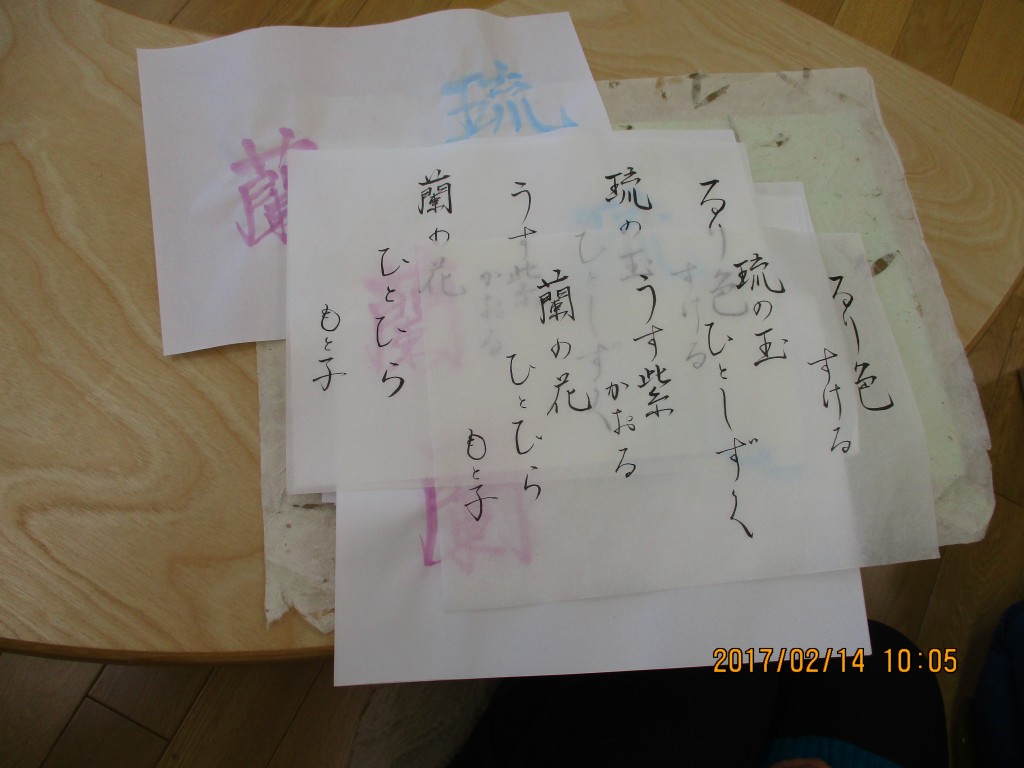 琉
蘭
るり色
すける
琉の玉
ひとしずく
うす紫
かおる
蘭の花
ひとひら
もと子
るり色
すける
琉の玉
ひとしずく
うす紫
かおる
蘭の花
ひとひら
もと子
蘭
2017/02/14 10:05